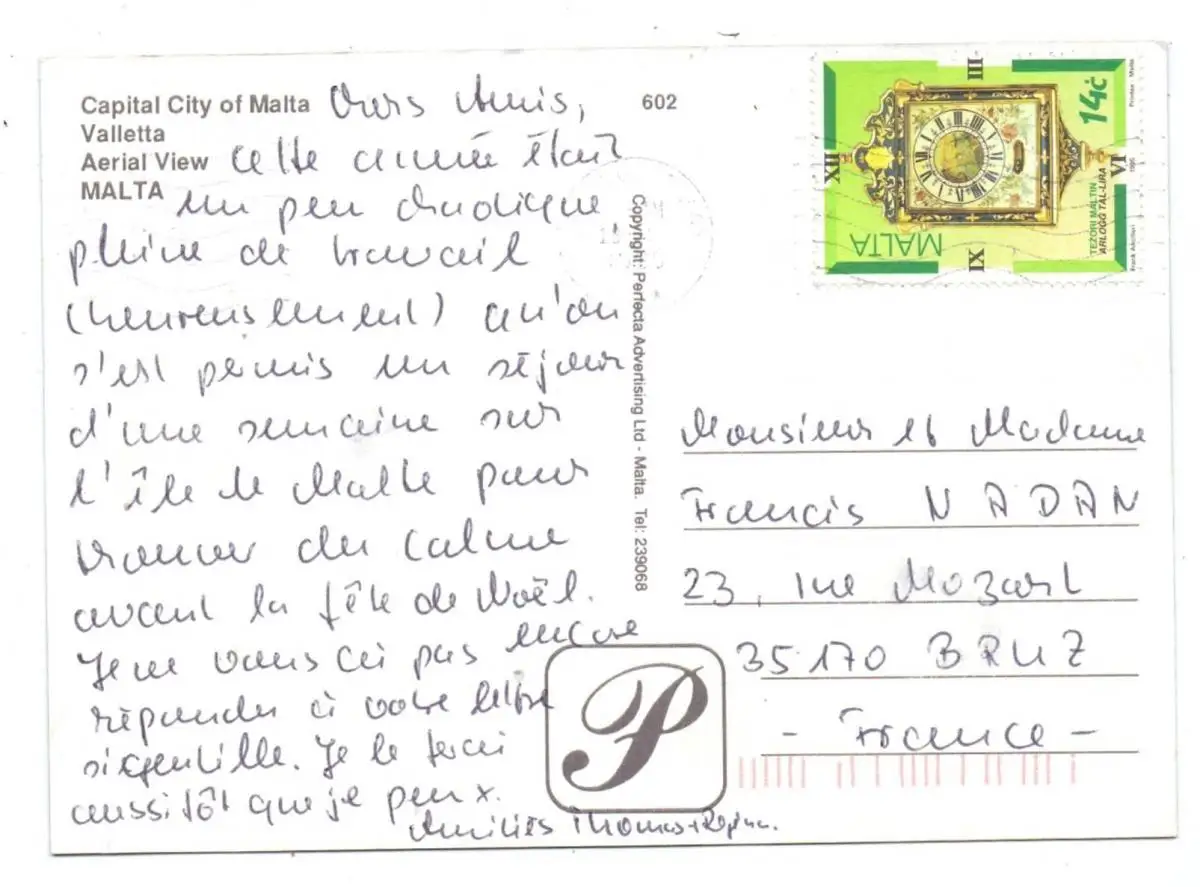 Capital City of Malta
Valletta
Aerial View
MALTA
602
Chers Amis,
cette année était
un peu
pleine de travail
(heureusement) qu'on
s'est permis un séjour
d'une semaine sur
l'île de Malte pour
trouver du calme
avant la fête de Noël.
Je ne vous ai pas encore
répondu à votre lettre
si gentille. Je le ferai
aussitôt que je peux.
Amitiés Thomas + Regina.
Copyright: Perfecta Advertising Ltd - Malta. Tel: 239068
P
III
XII
VI
IX
14c
MALTA
TEŻORI MALTIN
ARLOĠĠ TAL-LIRA
1995
Printex Malta
Monsieur et Madame
Francis NADAN
23, rue Mozart
35170 BRUZ
- France -